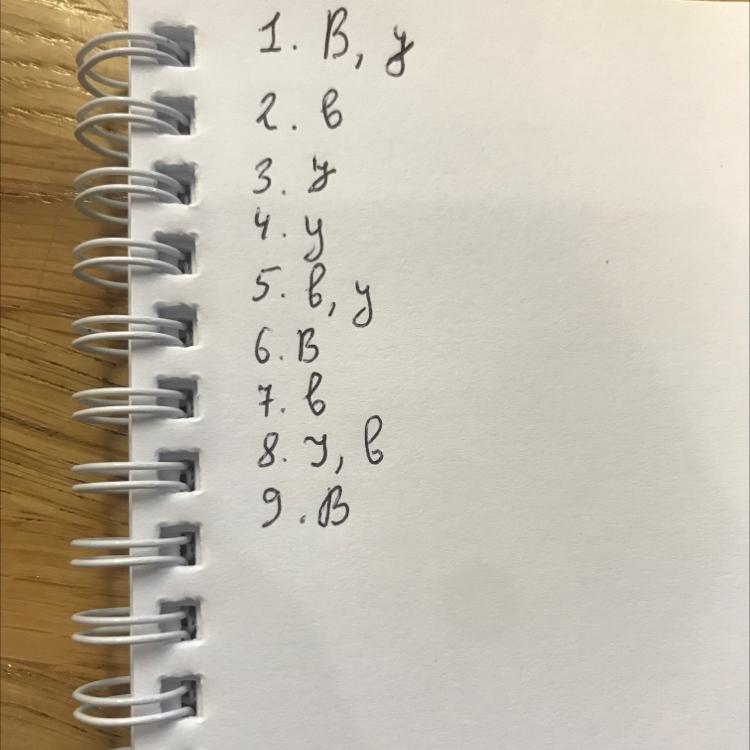 1. В, у
2. в
3. у
4. у
5. в, у
6. В
7. в
8. у, в
9. В